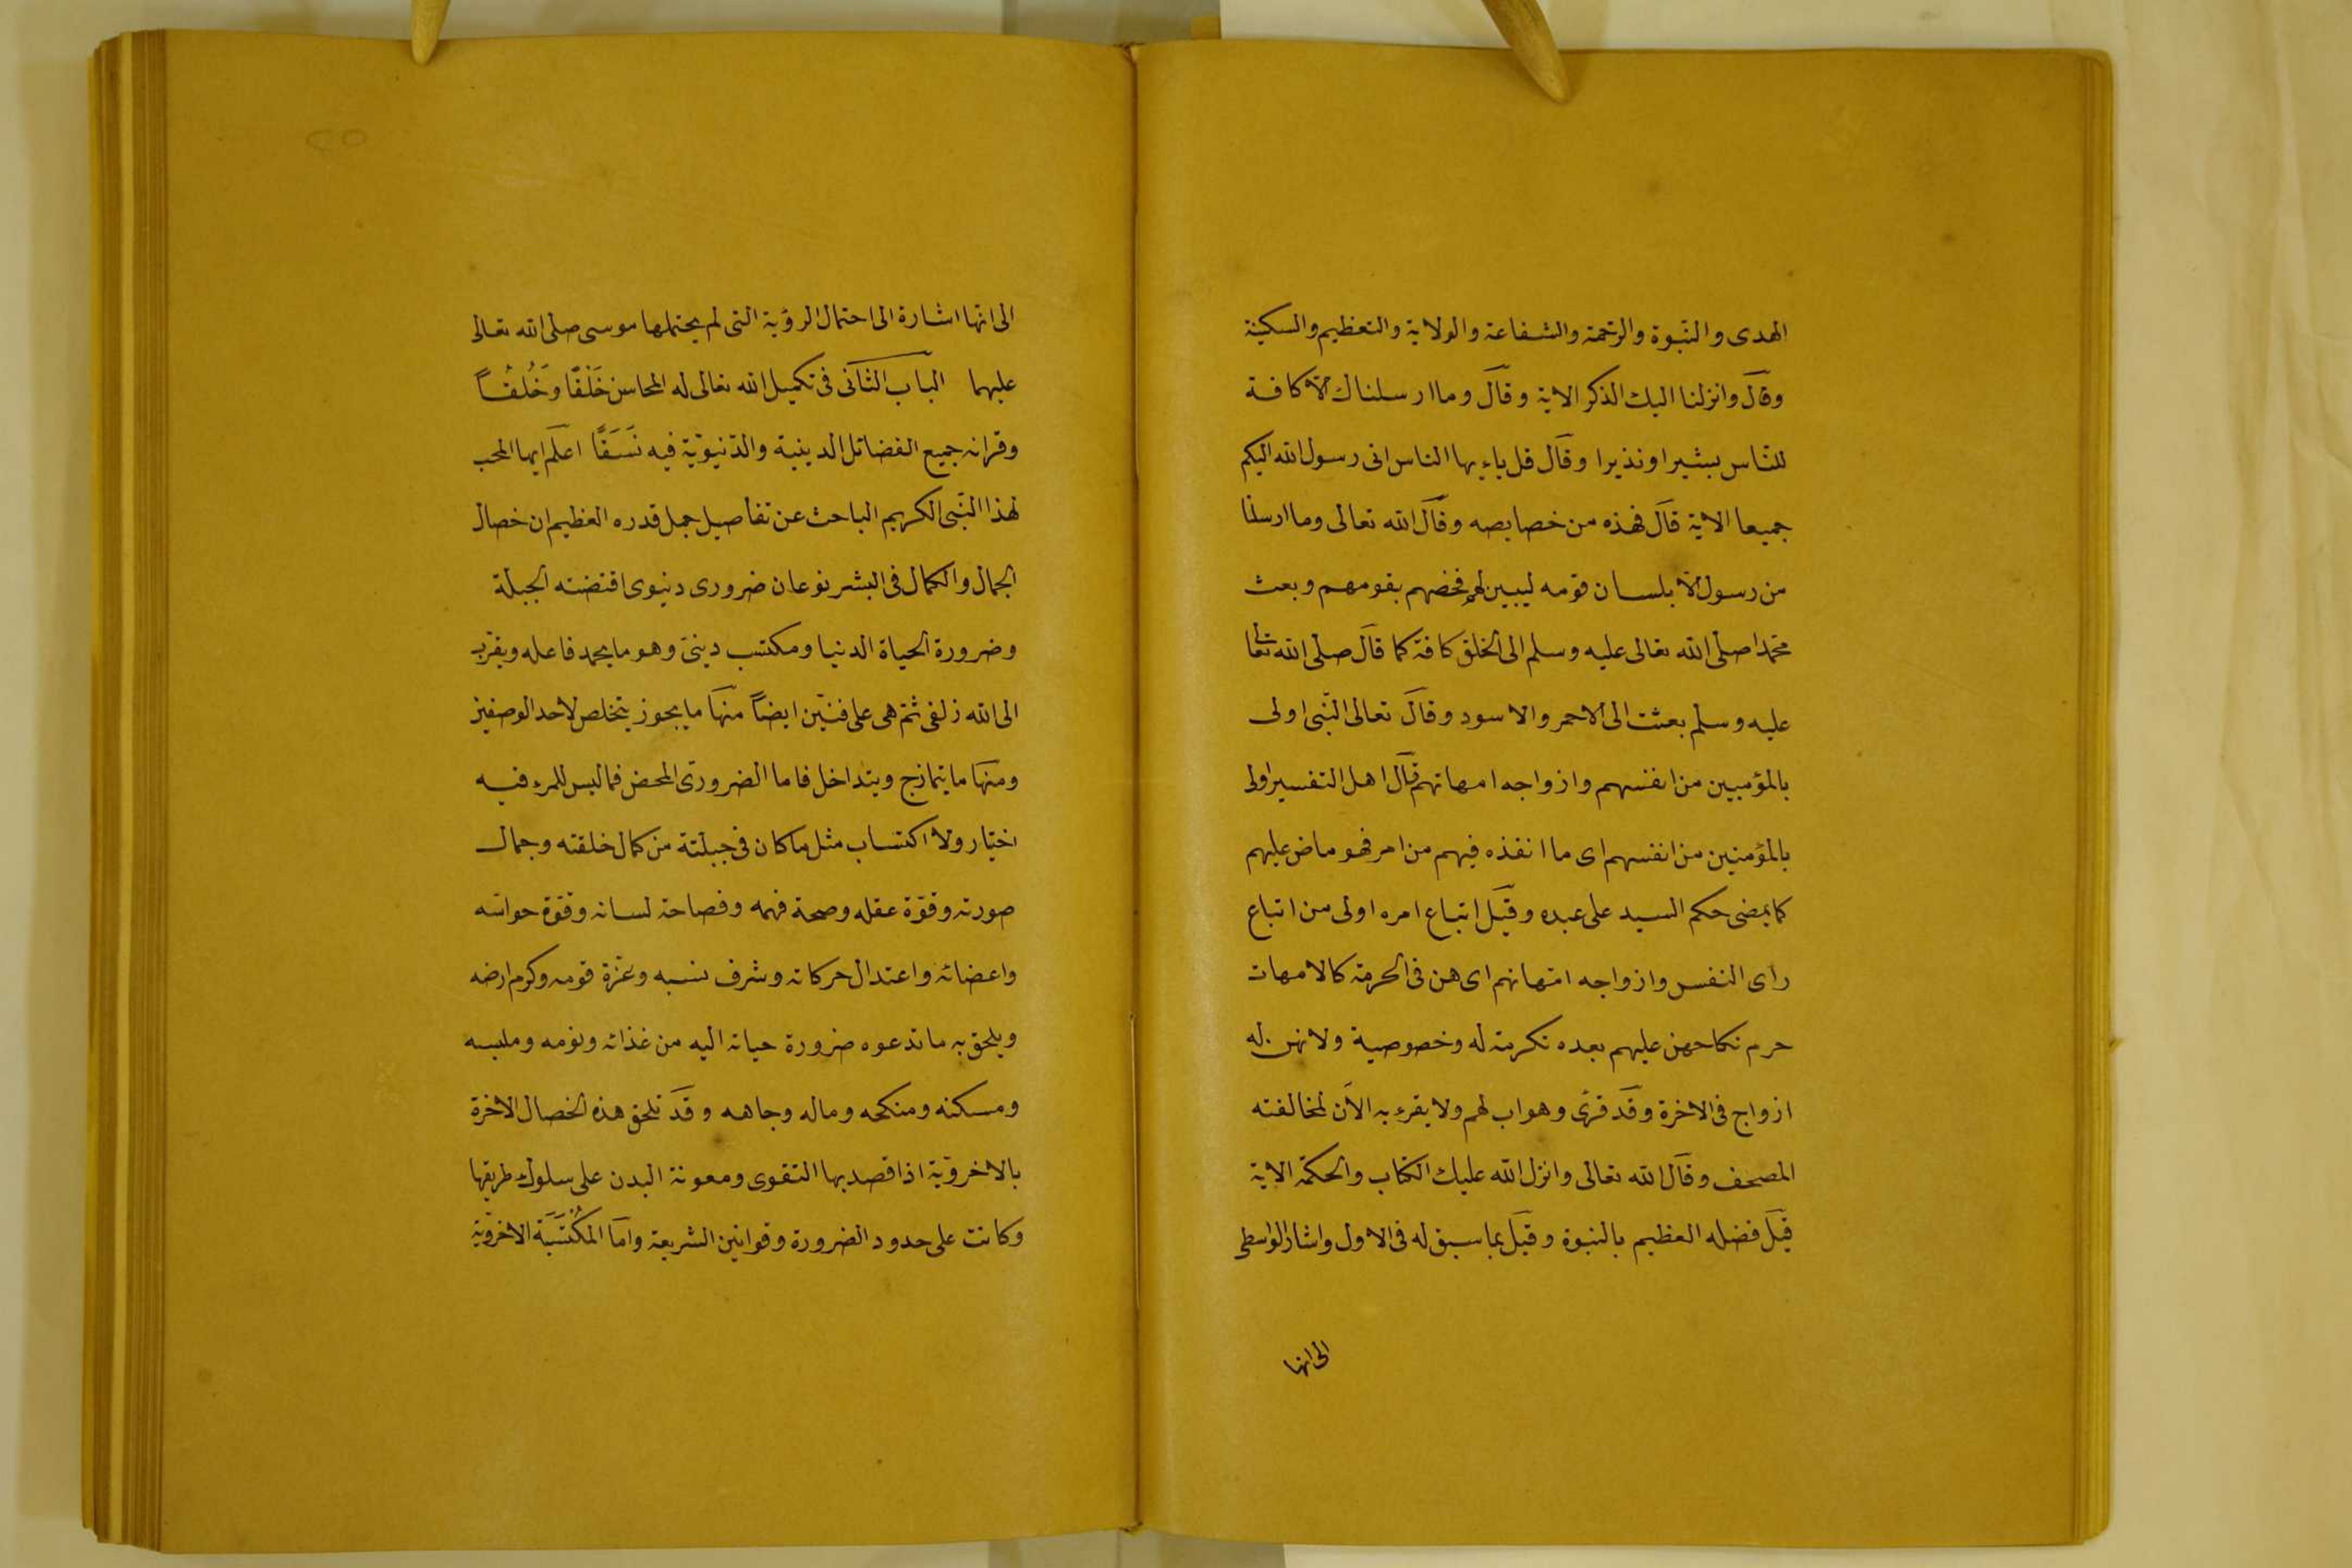 الهدى والنبّوة والرّحمة والشفاعة والولاية والتعظيم والسكينة
وقال وانزلنا اليك الذكر الاية وقال وما ارسلناك الا كافة
للنّاس بشيرا ونذيرا وقال قل ياءيها الناس انى رسول الله اليكم
جميعا الاية قال فهذه من خصايصه وقال الله تعالى وما ارسلنا
من رسول الا بلسان قومه ليبين لهم فخصّهم بقومهم وبعث
محمّدا صلّى الله تعالى عليه وسلم الى الخلق كافة كما قال صلّى الله تعالى
عليه وسلّم بعثت الى الاحمر والاسود وقال تعالى النّبى اولى
بالمؤمنين من انفسهم وازواجه امهاتهم قال اهل التفسير اولى
بالمؤمنين من انفسهم اى ما انفذه فيهم من امر فهو ماض عليهم
كما يمضى حكم السيد على عبده وقيل اتباع امره اولى من اتباع
راى النفس وازواجه امّهاتهم اى هن فى الحرمة كالامهات
حرم نكاحهن عليهم بعده تكرمة له وخصوصية ولانهن له
ازواج فى الاخرة وقد قرئ وهو اب لهم ولا يقرء به الآن لمخالفته
المصحف وقال الله تعالى وانزل الله عليك الكتاب والحكمة الاية
قيل فضله العظيم بالنبوة وقيل بما سبق له فى الاول واشار الواسطى
الى انها
الى انها اشارة الى احتمال الرؤية التى لم يحتملها موسى صلّى الله تعالى
عليهما الباب الثانى فى تكميل الله تعالى له المحاسن خَلْقًا وخُلُقًا
وقرانه جميع الفضائل الدينية والدّنيويّة فيه نَسَقًا اعلم ايها المحب
لهذا النّبى الكريم الباحث عن تفاصيل جمل قدره العظيم ان خصال
الجمال والكمال فى البشر نوعان ضرورى دنيوى اقتضته الجبلة
وضرورة الحياة الدنيا ومكتسب دينىّ وهو ما يحمد فاعله ويقرّب
الى الله زلفى ثمّ هى على فنّين ايضاً منها ما يجوز يتخلص لاحد الوصفين
ومنها ما يتمازج ويتداخل فاما الضرورى المحض فما ليس للمرء فيه
اختيار ولا اكتساب مثل ما كان فى جبلّتة من كمال خلقته وجمال
صورته وقوّة عقله وصحة فهمه وفصاحة لسانه وقوّة حواسّه
واعضائه واعتدال حركاته وشرف نسبه وعزّة قومه وكرم ارضه
ويلحق به ما تدعوه ضرورة حياته اليه من غذائه ونومه وملبسه
ومسكنه ومنكحه وماله وجاهه وقد تلحق هذه الخصال الاخرة
بالاخرويّة اذا قصد بها التقوى ومعونة البدن على سلوك طريقها
وكانت على حدود الضرورة وقوانين الشريعة وامّا المُكْتَسَبَة الاخرويّة